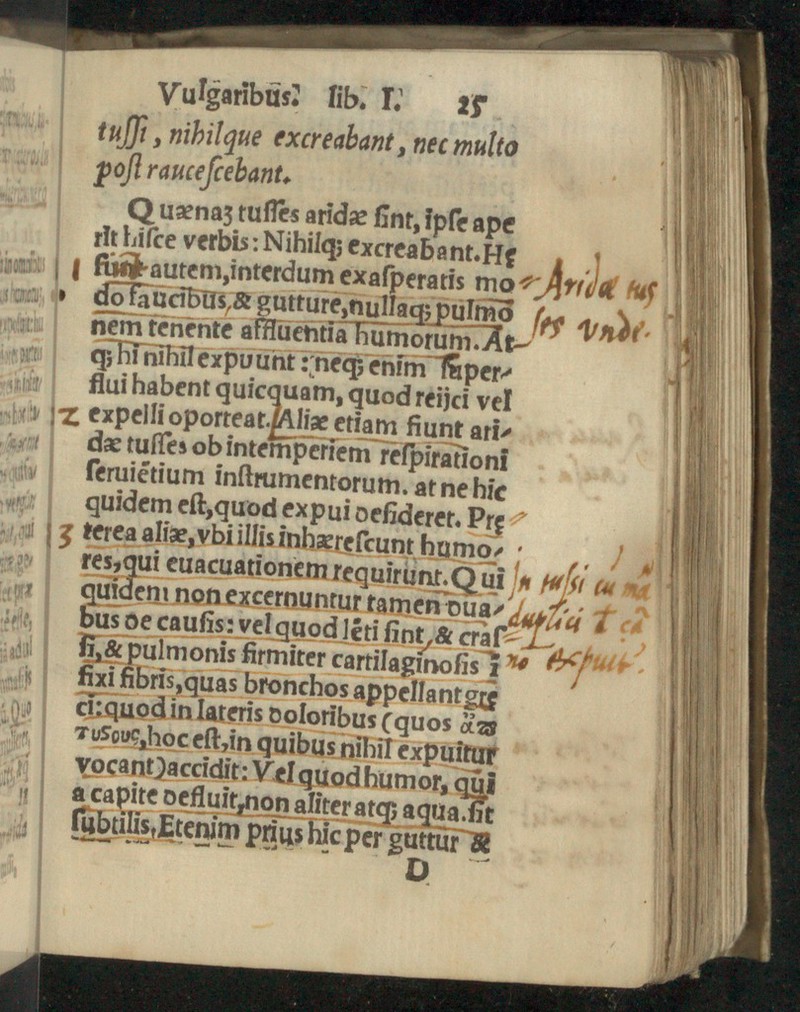 Vulgaribus. lib. I. 25
tuſſi, nihilque excreabant, nec multo
poſt rauceſcebant.
Quænaꝫ tuſſes aridæ ſint, ipſe ape
rit hiſce verbis: Nihilqꝫ excreabant. Hę
1 fiūt autem, interdum exaſperatis mo
do faucibus, & gutture, nullaqꝫ pulmo
nem tenente affluentia humorum. At
qꝫ hi nihil expuunt: neqꝫ enim ſuper⸗
flui habent quicquam, quod reijci vel
2 expelli oporteat. Aliæ etiam fiunt ari⸗
dæ tuſſes ob intemperiem reſpirationi
ſeruiētium inſtrumentorum. at ne hic
quidem eſt, quod expui deſideret. Prę
3 terea aliæ, vbi illis inhæreſcunt humo⸗
res, qui euacuationem requirunt. Qui
quidem non excernuntur tamen dua⸗
bus de cauſis: vel quod lēti ſint, & craſ⸗
ſi, & pulmonis firmiter cartilaginoſis ī
fixi fibris, quas bronchos appellant gre
ci: quod in lateris doloribus (quos
hoc eſt, in quibus nihil expuitur
vocant) accidit: Vel quod humor, qui
a capite defluit, non aliter atqꝫ aqua. ſit
ſubtilis. Etenim prius hic per guttur &
D
Arida tus
ses vnde.
In tussi
duplici
no expuit.